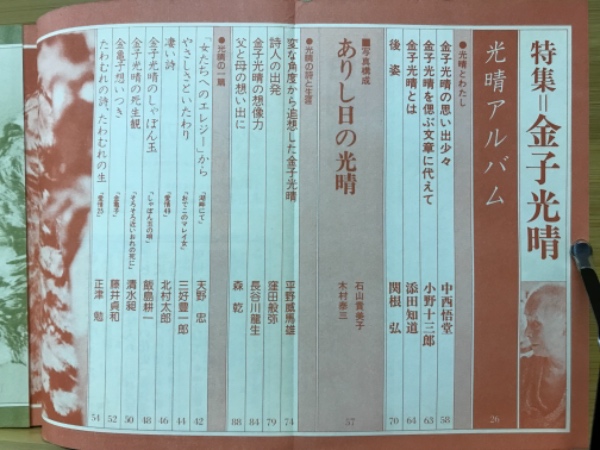 特集=金子光晴
光晴アルバム 26
●光晴とわたし
金子光晴の思い出少々 中西悟堂 58
金子光晴を偲ぶ文章に代えて 小野十三郎 63
金子光晴とは 添田知道 64
後姿 関根弘 70
■写真構成
ありし日の光晴 石山貴美子 木村泰三 57
●光晴の詩と生涯
変な角度から追想した金子光晴 平野威馬雄 74
詩人の出発 窪田般弥 79
金子光晴の想像力 長谷川龍生 84
父と母の想い出に 森乾 88
●光晴の一篇
「女たちへのエレジー」から 「湖畔にて」 天野忠 42
やさしさといたわり 「おでこのマレイ女」 三好豊一郎 44
凄い詩 「愛情46」 北村太郎 46
金子光晴のしゃぼん玉 「しゃぼん玉の唄」 飯島耕一 48
金子光晴の死生観 「そろそろ近いおれの死に」 清水昶 50
金亀子想いつき 「金亀子」 藤井貞和 52
たわむれの詩、たわむれの生 「愛情25」 正津勉 54